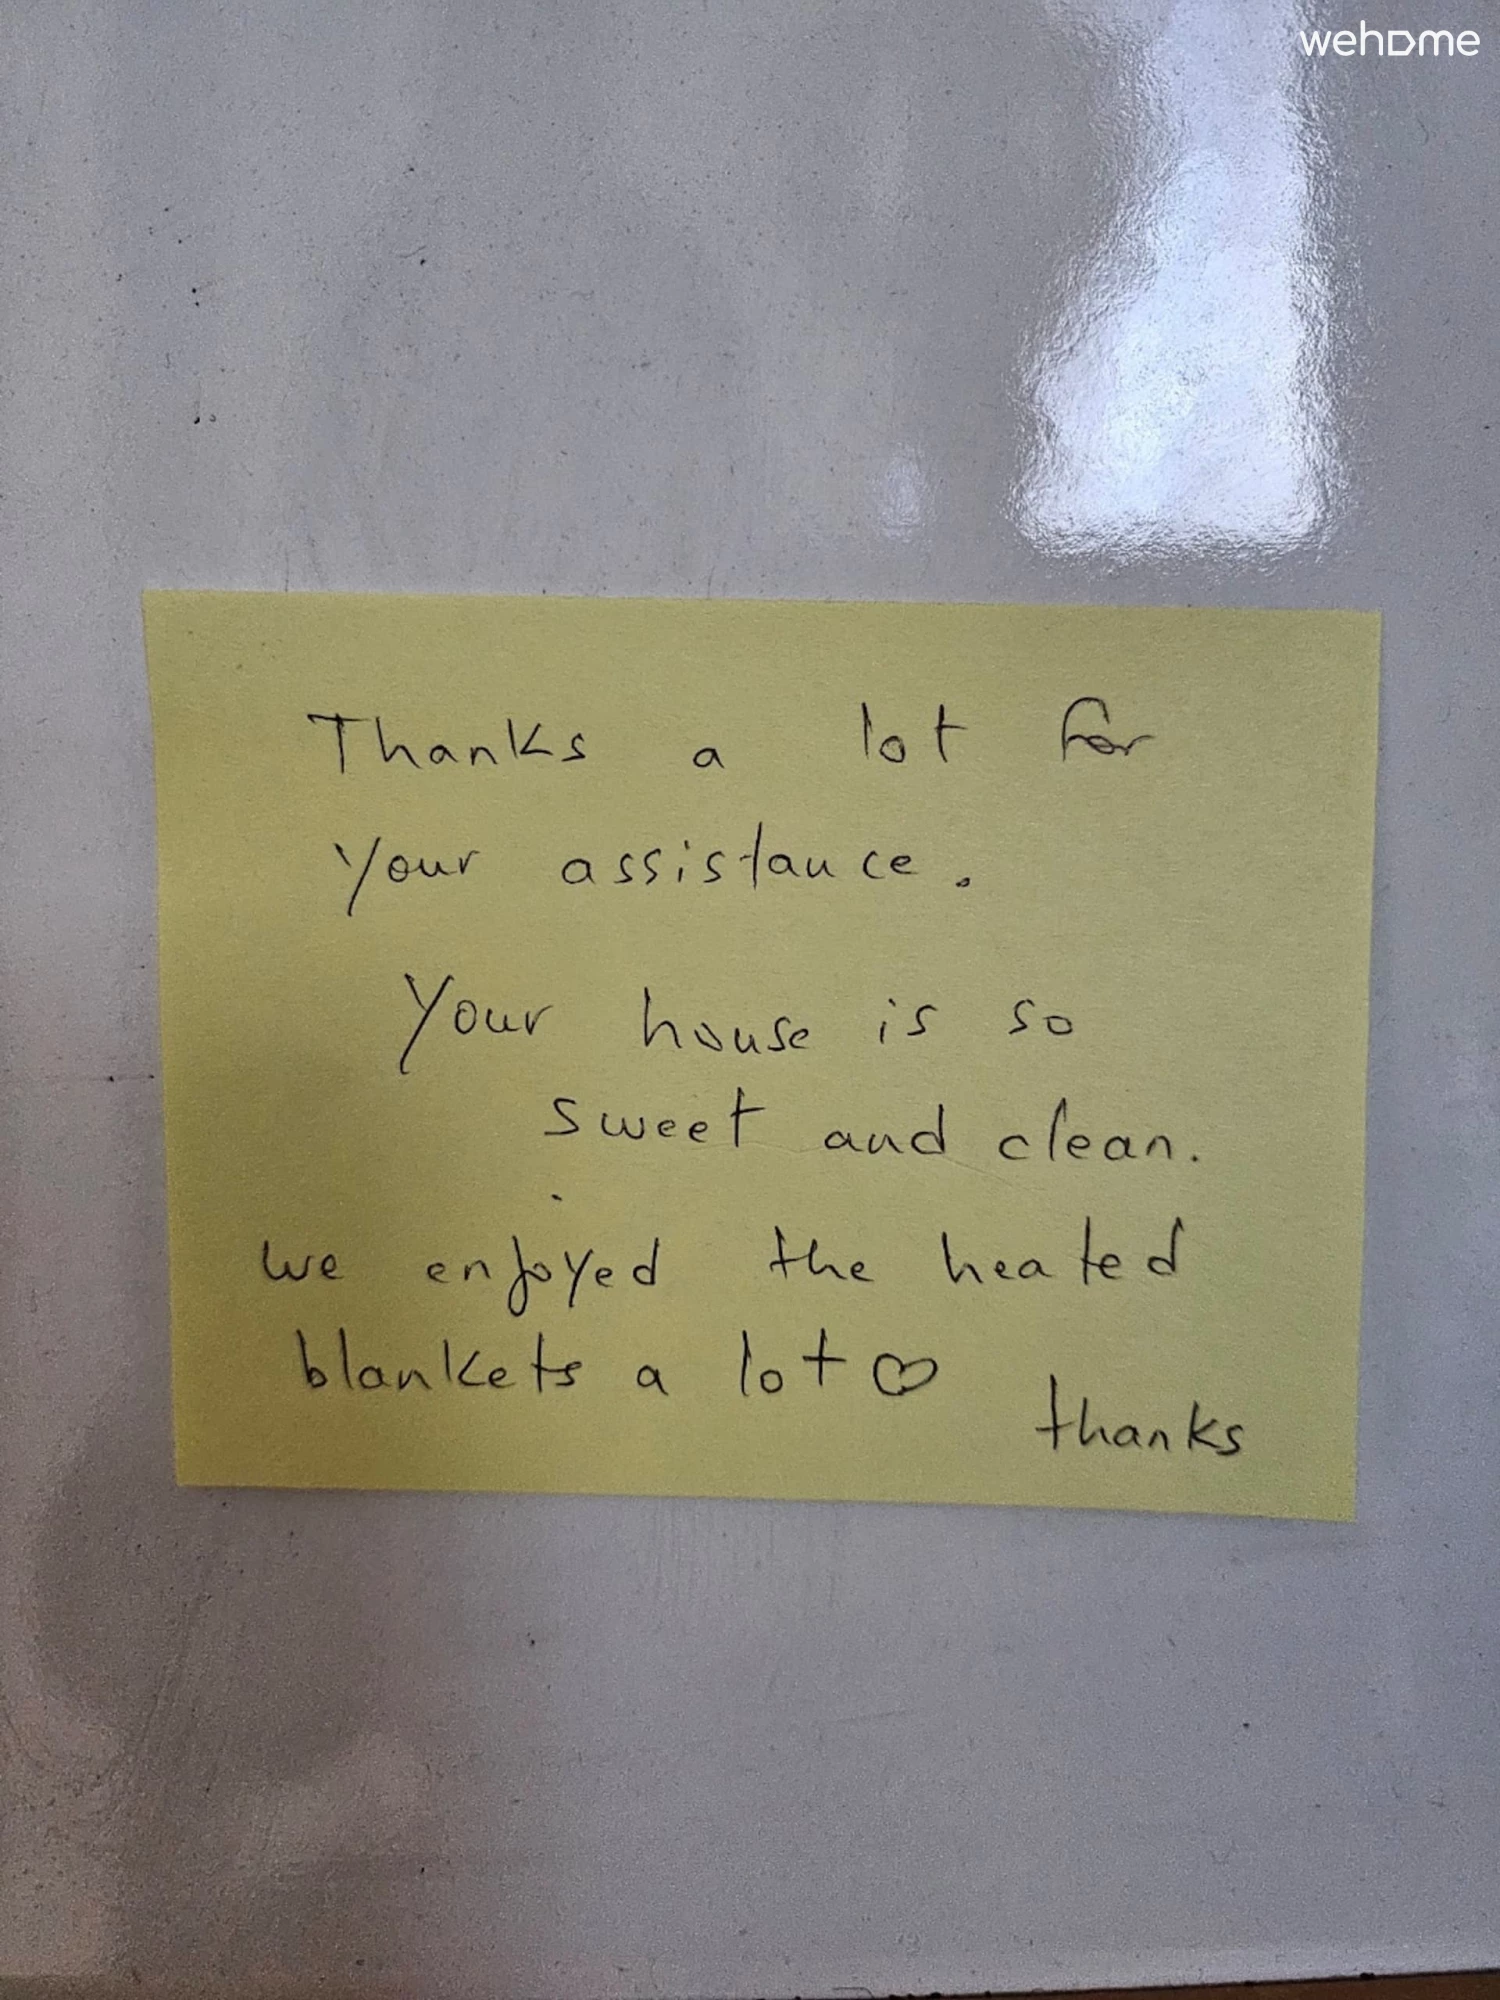 wehome
Thanks a lot for
your assistance.
Your house is so
sweet and clean.
we enjoyed the heated
blankets a lot ♡
thanks